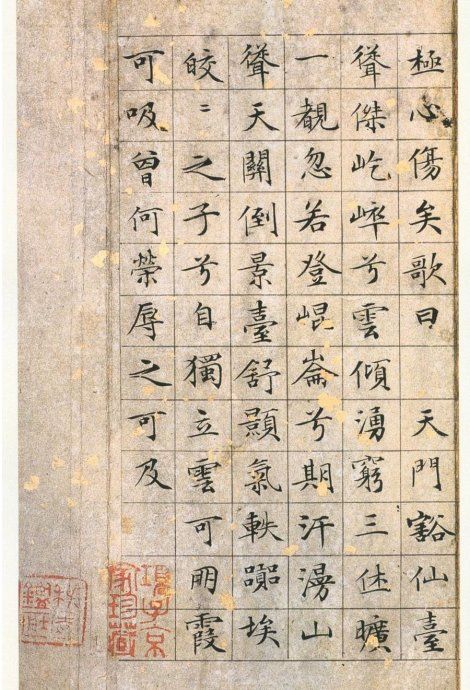 極心傷矣歌曰　天門豁仙臺
聳傑屹崒兮雲傾湧窮三休曠
一覩忽若登崐崙兮期汗漫山
聳天關倒景臺舒顥氣軼埃
皎〻之子兮自獨立雲可朋霞
可吸曾何榮辱之可及
項子京家珍藏